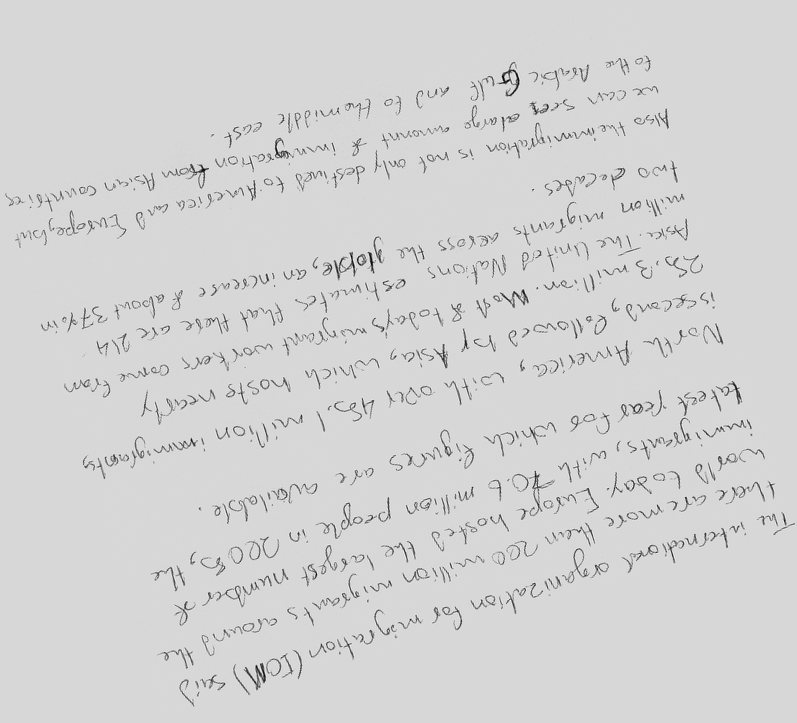 The international organization for migration (IOM) said
there are more then 200 million migrants around the
world today. Europe hosted the largest number of
immigrants, with 70.6 million people in 2005, the
latest year for which figures are available.
North America, with over 45.1 million immigrants,
is second, followed by Asia, which hosts nearly
25.3 million. Most of today's migrant workers come from
Asia. The United Nations estimates that there are 214
million migrants across the globle, an increase of about 37% in
two decades.
Also the immigration is not only destined to America and Europe, but
we can see a large amount of immigration from Asian countires
to the Arabic Gulf and to the middle east.